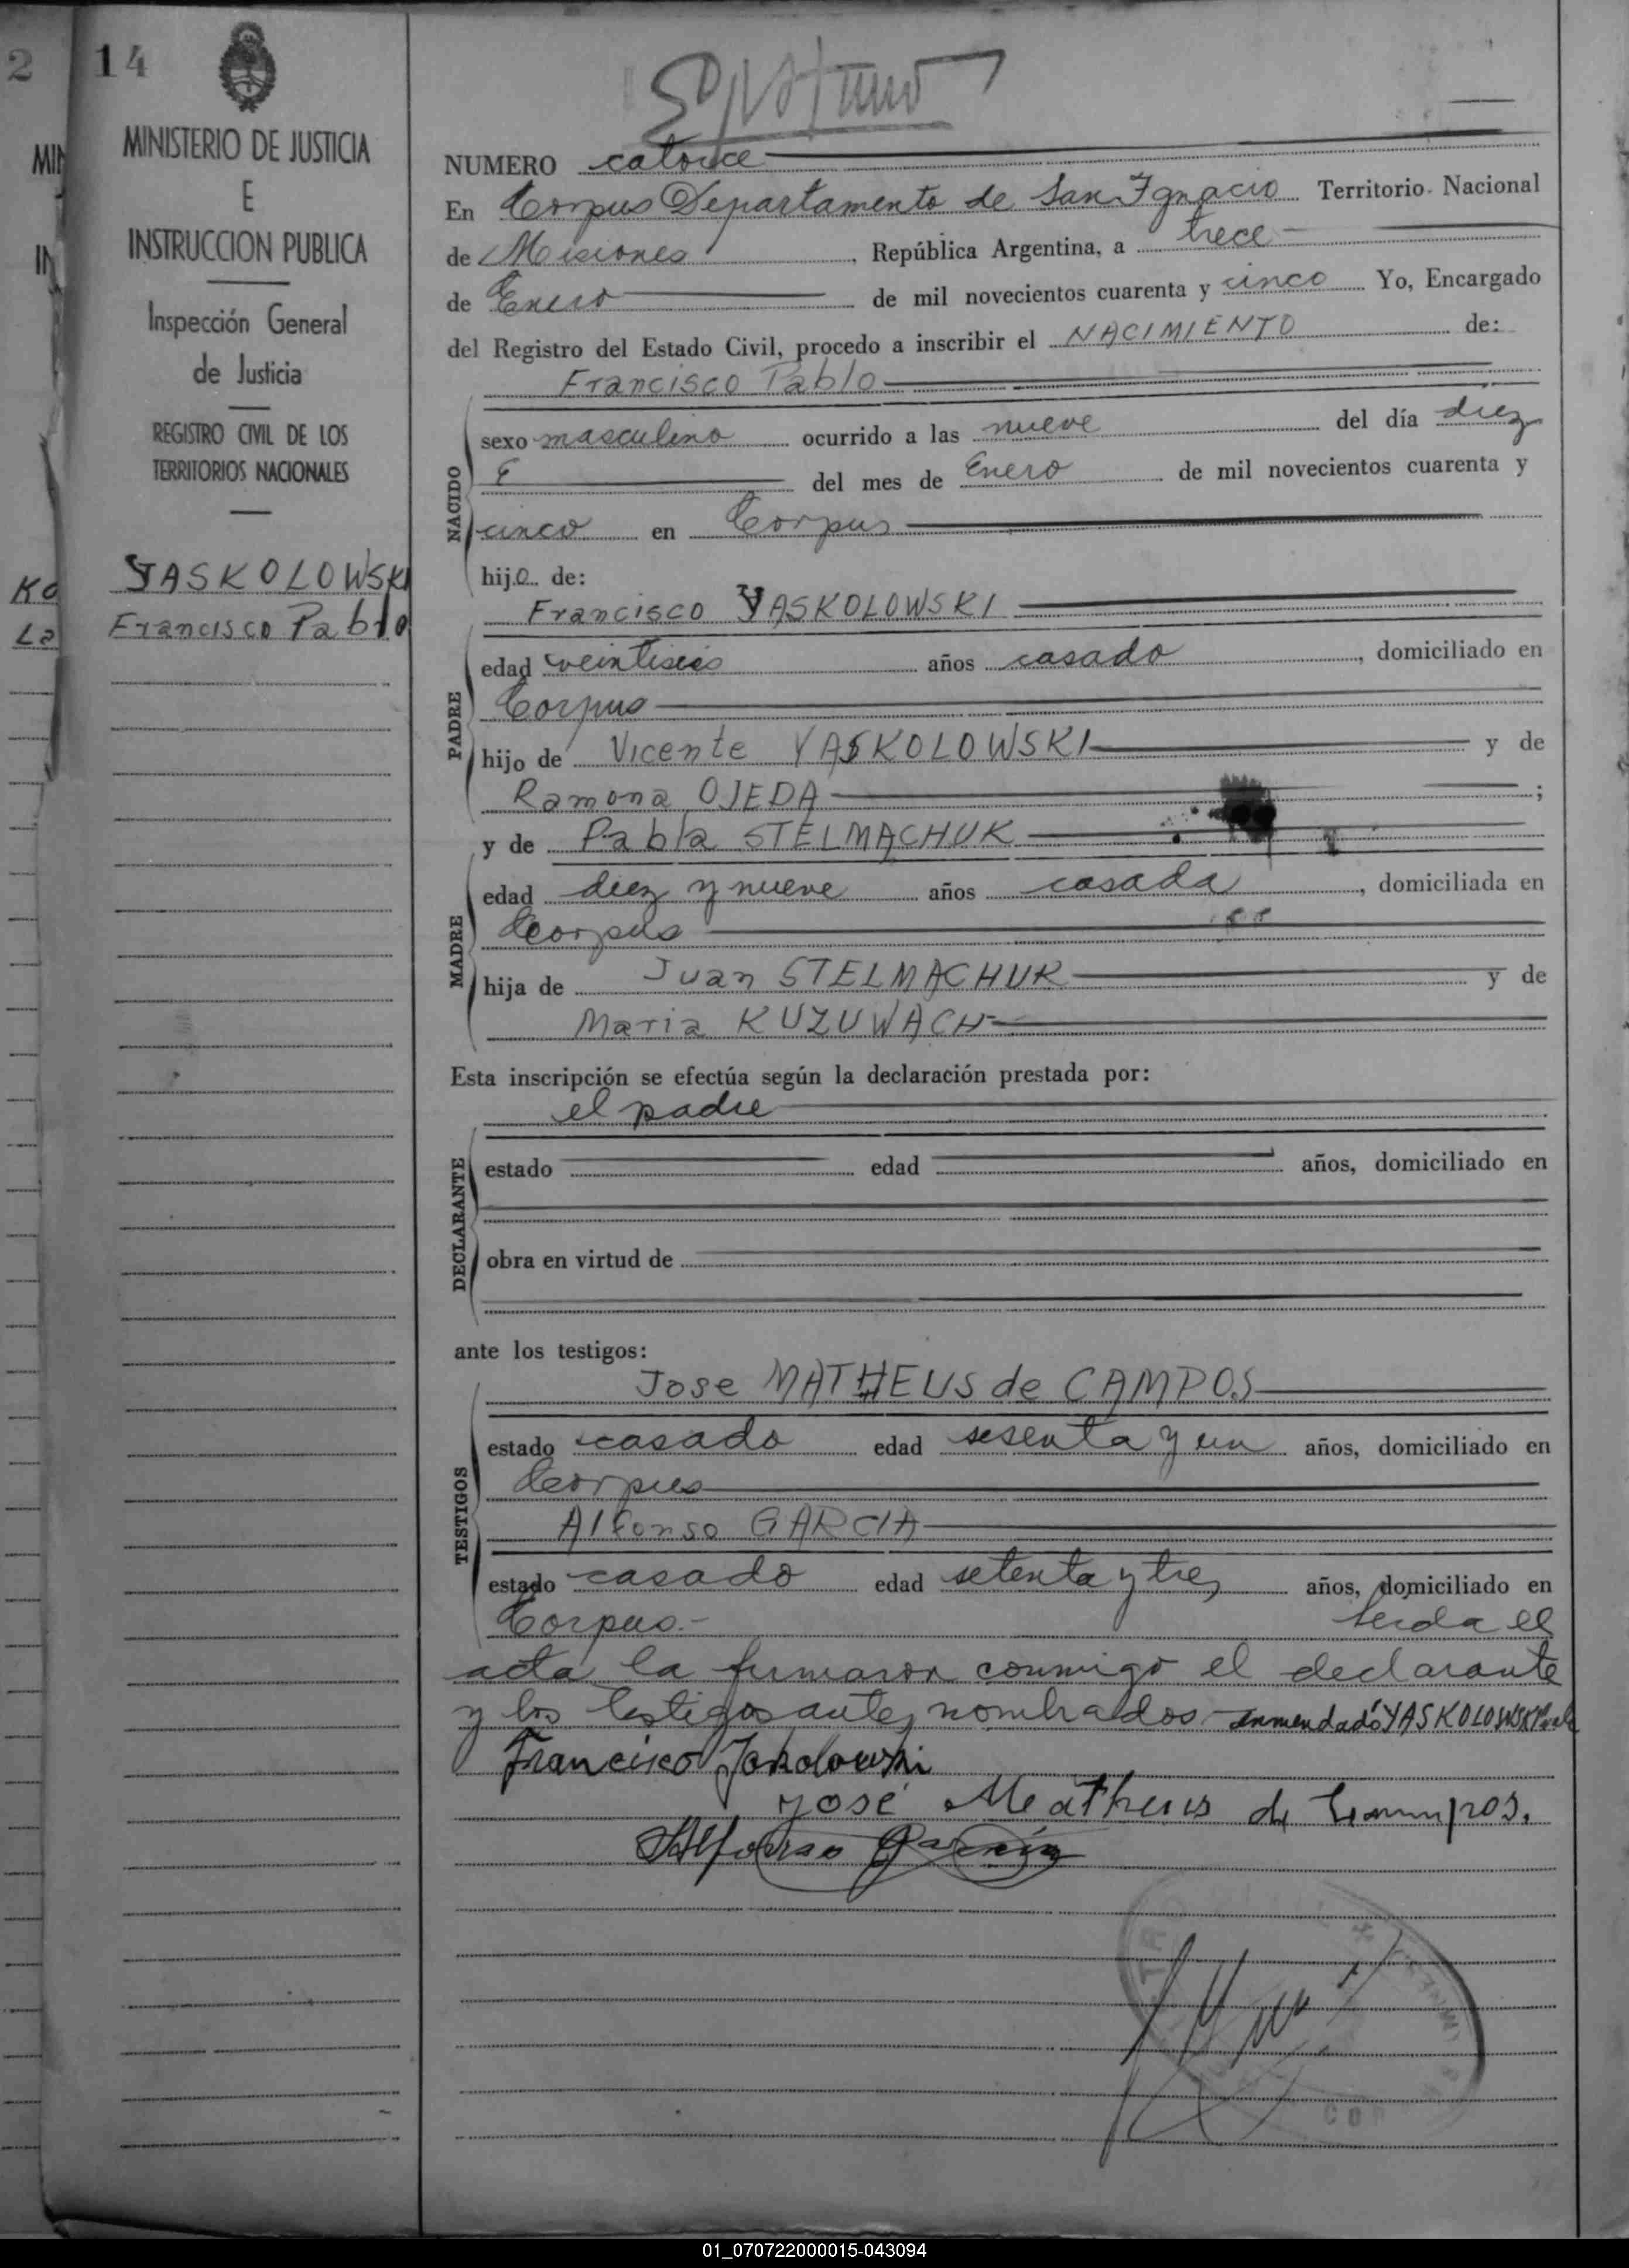 2
14
MINISTERIO DE JUSTICIA
E
INSTRUCCION PUBLICA
Inspección General
de Justicia
REGISTRO CIVIL DE LOS
TERRITORIOS NACIONALES
YASKOLOWSKI
Francisco Pablo
NUMERO catorce
En Corpus Departamento de San Ignacio Territorio Nacional
de Misiones, República Argentina, a trece
de Enero de mil novecientos cuarenta y cinco Yo, Encargado
del Registro del Estado Civil, procedo a inscribir el NACIMIENTO de:
Francisco Pablo
NACIDO
sexo masculino ocurrido a las nueve del día diez
del mes de Enero de mil novecientos cuarenta y
cinco en Corpus
hijo de:
Francisco YASKOLOWSKI
PADRE
edad veintiseis años casado, domiciliado en
Corpus
hijo de Vicente YASKOLOWSKI y de
Ramona OJEDA;
y de Pabla STELMACHUK
MADRE
edad diez y nueve años casada, domiciliada en
Corpus
hija de Juan STELMACHUK y de
Maria KUZUWACH
Esta inscripción se efectúa según la declaración prestada por:
el padre
DECLARANTE
estado edad años, domiciliado en
obra en virtud de
ante los testigos:
Jose MATHEUS de CAMPOS
TESTIGOS
estado casado edad sesenta y un años, domiciliado en
Corpus
Alfonso GARCIA
estado casado edad setenta y tres años, domiciliado en
Corpus.- Leida el
acta la firmaron conmigo el declarante
y los testigos antes nombrados. Enmendado YASKOLOWSKI Vale
Francisco Jaskolowski
José Matheus de Campos.
Alfonso García
01_070722000015-043094